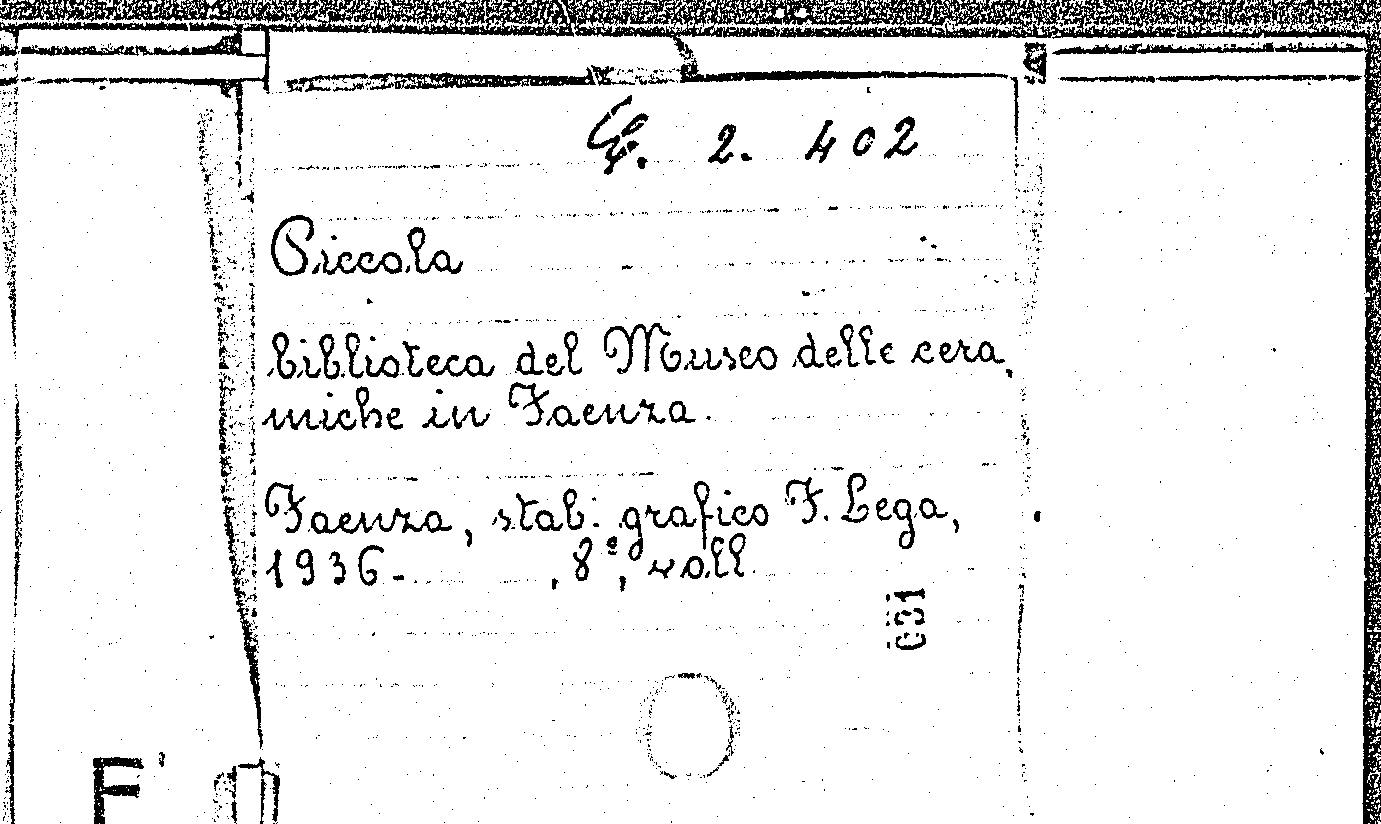 G. 2. 402
Piccola
biblioteca del Museo delle cera,
miche in Faenza.
Faenza, stab. grafico F. Lega,
1936- , 8°, voll.
631
F